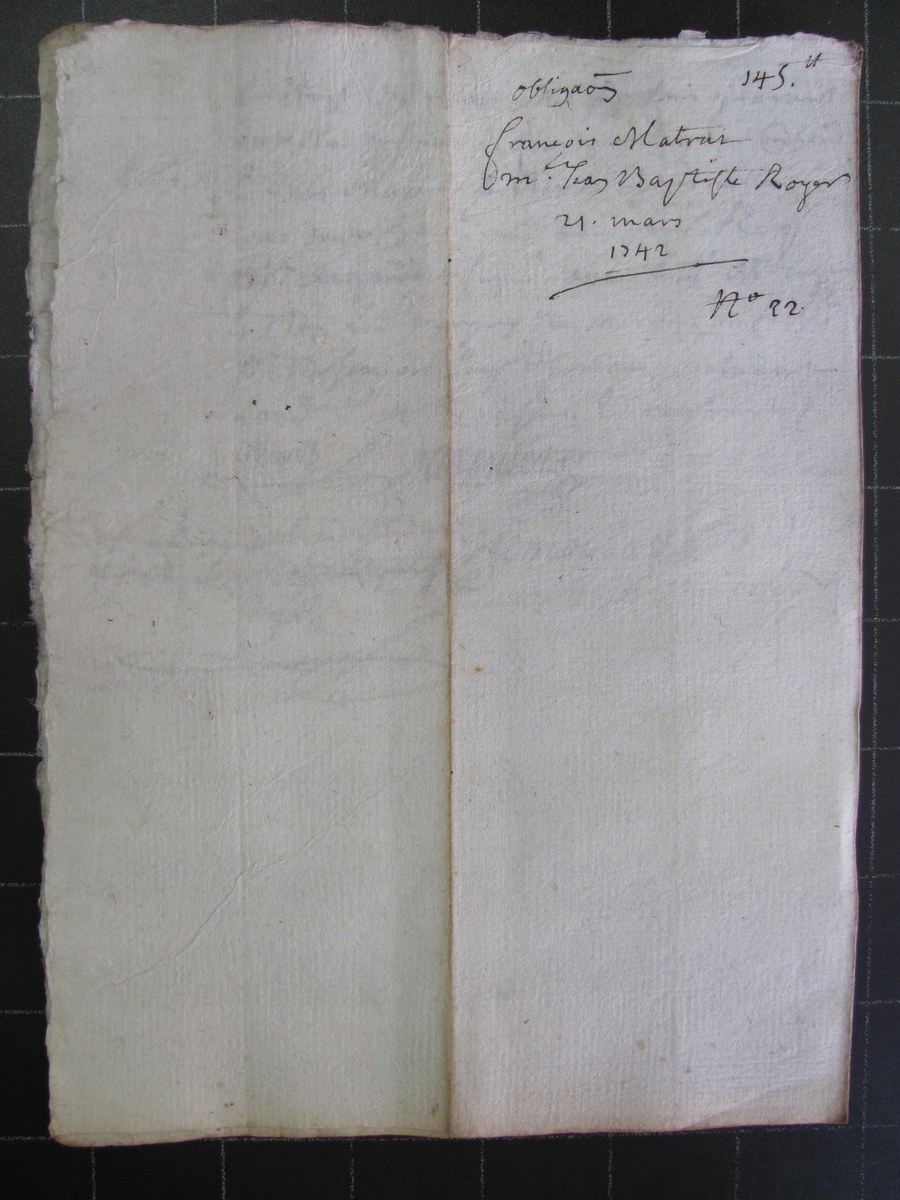 obligaõn 145.ᵗᵗ
françois Matrat
Mᵉ. Jean Baptiste Royer
21. mars
1742
N° 22.